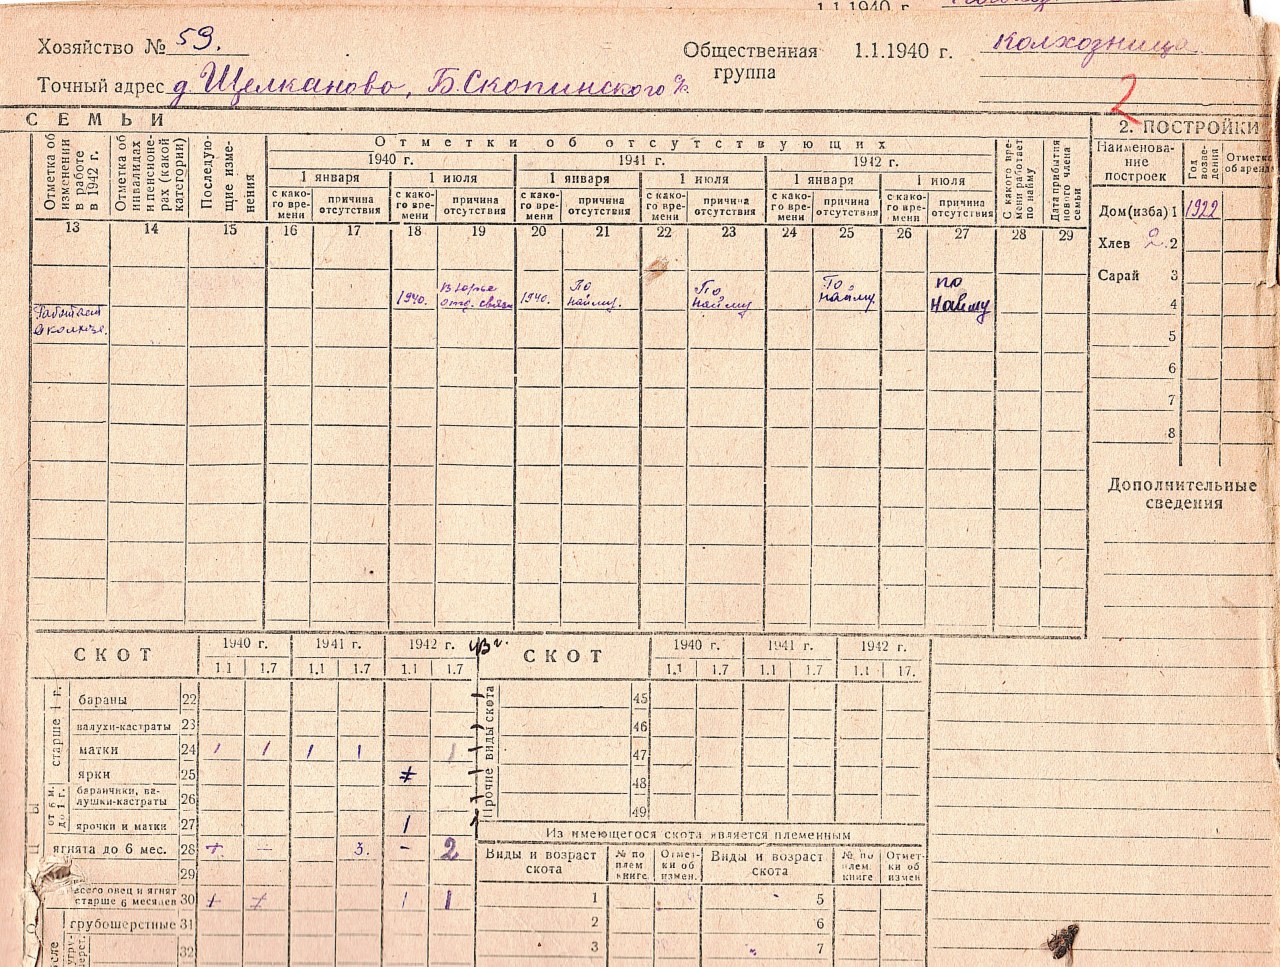 1.1.1940 г.
Хозяйство № 59.
Общественная группа 1.1.1940 г. колхозница
Точный адрес д. Щелканово, Б. Скопинского с/с.
2
СЕМЬИ
2. ПОСТРОЙКИ
Отметка об изменении в работе в 1942 г.
Отметка об инвалидах и пенсионерах (какой категории)
Последующие изменения
Отметки об отсутствующих
1940 г. 1941 г. 1942 г.
1 января 1 июля 1 января 1 июля 1 января 1 июля
с како-го вре-мени причина отсутствия с како-го вре-мени причина отсутствия с како-го вре-мени причина отсутствия с како-го вре-мени причина отсутствия с како-го вре-мени причина отсутствия с како-го вре-мени причина отсутствия
С какого вре-мени работает по найму
Дата прибытия нового члена семьи
Наименова-ние построек
Год возве-дения
Отметка об аренде
13 14 15 16 17 18 19 20 21 22 23 24 25 26 27 28 29
Дом (изба) 1 1922
Хлев 2. 2
Сарай 3
4
5
6
7
8
1940. отд. связи 1940. По найму. По найму По найму. по найму
Работает в колхозе.
Дополнительные сведения
СКОТ 1940 г. 1941 г. 1942 г.
1.1 1.7 1.1 1.7 1.1 1.7
старше 1 г.
бараны 22
валухи-кастраты 23
матки 24 1 1 1 1 1
ярки 25
от 6 м. до 1 г.
баранчики, ва-лушки-кастраты 26
ярочки и матки 27 1
ягнята до 6 мес. 28 + — 3. - 2
29
всего овец и ягнят старше 6 месяцев 30 1 1
грубошерстные 31
32
СКОТ 1940 г. 1941 г. 1942 г.
1.1 1.7 1.1 1.7 1.1 17.
Прочие виды скота
45
46
47
48
49
Из имеющегося скота является племенным
Виды и возраст скота № по плем. книге Отмет-ки об измен. Виды и возраст скота № по плем. книге Отмет-ки об измен
1 5
2 6
3 7